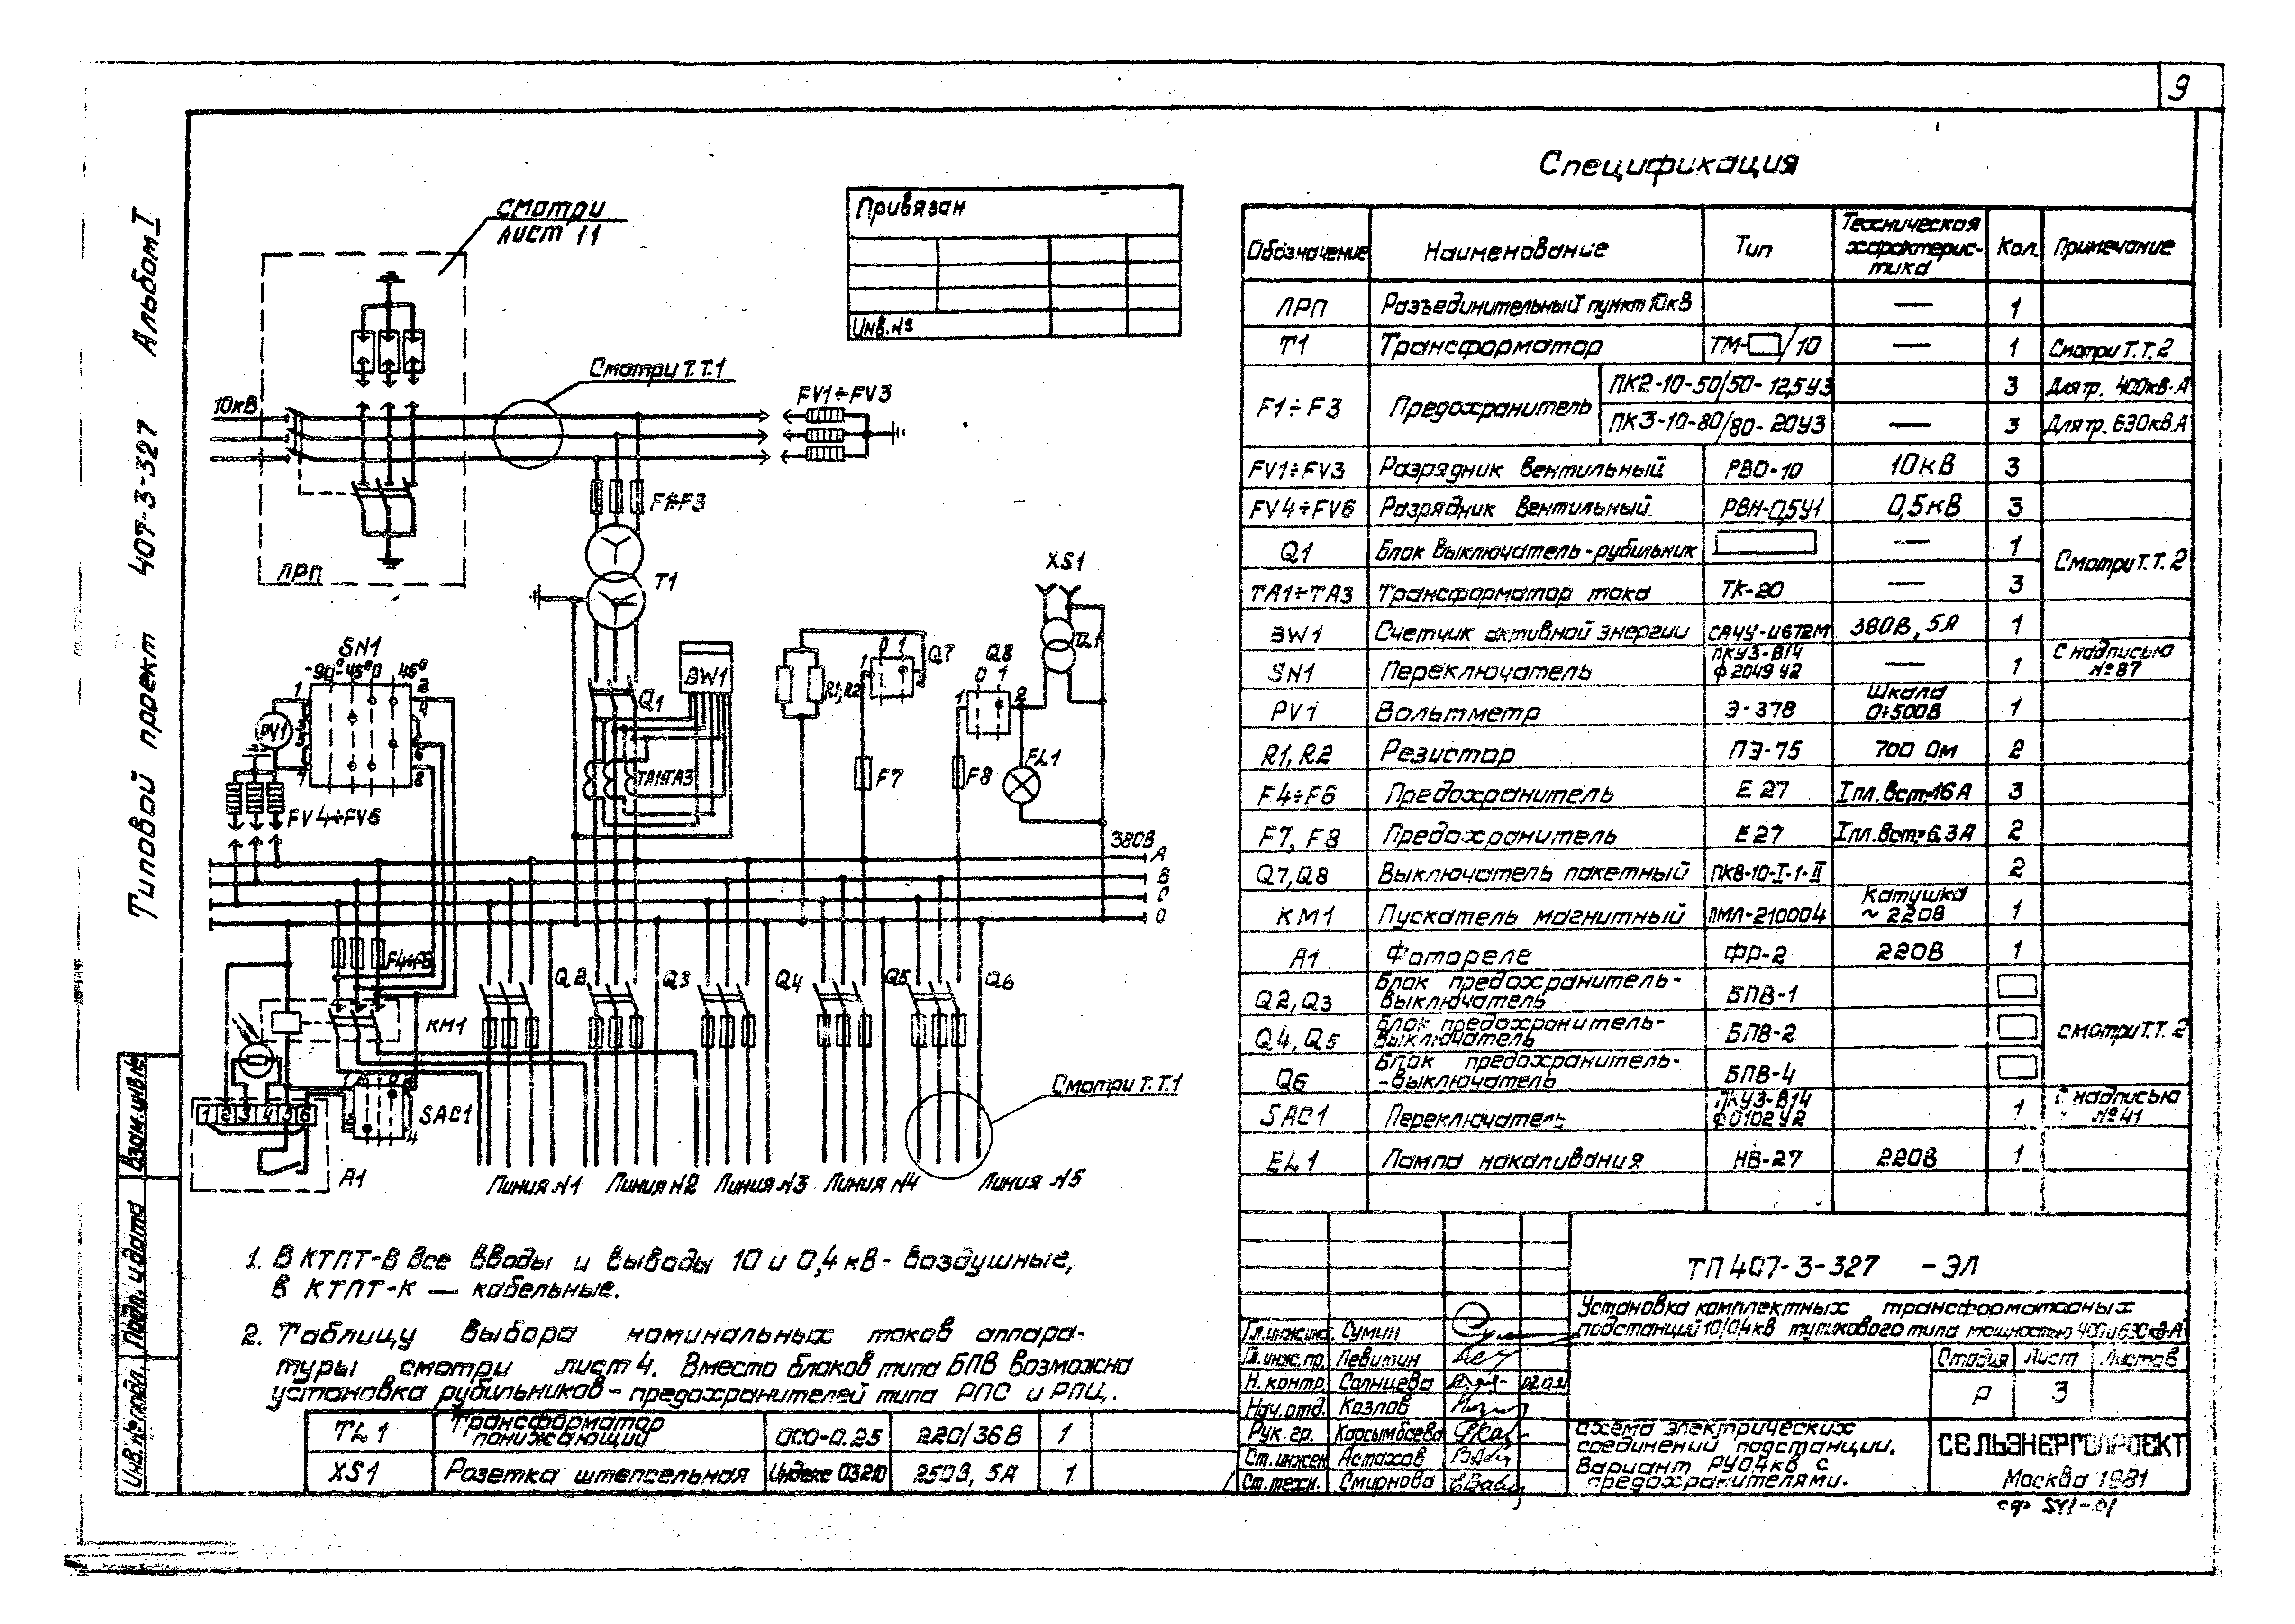 9
Типовой проект 407-3-327 Альбом I
Смотри
лист 11
Привязан
Инв.№
10кВ
Смотри Т.Т.1
FV1÷FV3
F1÷F3
ЛРП
T1
XS1
TL1
SN1
-90° -45° 0 45°
PV1
FV4÷FV6
Q1
BW1
TA1÷TA3
R1, R2
0 1
Q7
0 1
Q8
F7
F8
EL1
380В
A
B
C
0
F4÷F6
KM1
Q2
Q3
Q4
Q5
Q6
SAC1
1 2 3 4 5 6
A1
Смотри Т.Т.1
Линия N1
Линия N2
Линия N3
Линия N4
Линия N5
1. В КТПТ-В все вводы и выводы 10 и 0,4 кв - воздушные,
в КТПТ-К — кабельные.
2. Таблицу выбора номинальных токов аппара-
туры смотри лист 4. Вместо блоков типа БПВ возможна
установка рубильников-предохранителей типа РПС и РПЦ.
TL1 Трансформатор понижающий ОСО-0.25 220/36В 1
XS1 Розетка штепсельная Индекс 03210 250В, 5А 1
Спецификация
Обозначение Наименование Тип Техническая характерис-тика Кол. Примечание
ЛРП Разъединительный пункт 10кВ — 1
T1 Трансформатор ТМ-□/10 — 1 Смотри Т.Т.2
F1÷F3 Предохранитель ПК2-10-50/50-12,5У3 3 Для тр. 400кв·А
ПК3-10-80/80-20У3 — 3 Для тр. 630кв.А
FV1÷FV3 Разрядник вентильный РВО-10 10кВ 3
FV4÷FV6 Разрядник вентильный РВН-0,5У1 0,5кВ 3
Q1 Блок выключатель-рубильник — 1 Смотри Т.Т.2
TA1÷TA3 Трансформатор тока ТК-20 — 3
BW1 Счетчик активной энергии СА4У-И672М 380В, 5А 1
SN1 Переключатель ПКУ3-В14 ф2049У2 — 1 С надписью №87
PV1 Вольтметр Э-378 Шкала 0÷500В 1
R1, R2 Резистор ПЭ-75 700 Ом 2
F4÷F6 Предохранитель Е27 Iпл.вст=16А 3
F7, F8 Предохранитель Е27 Iпл.вст=6,3А 2
Q7, Q8 Выключатель пакетный ПКВ-10-I-1-II 2
KM1 Пускатель магнитный ПМЛ-210004 Катушка ~220В 1
A1 Фотореле ФР-2 220В 1
Q2, Q3 Блок предохранитель-выключатель БПВ-1
Q4, Q5 Блок предохранитель-выключатель БПВ-2 смотри Т.Т.2
Q6 Блок предохранитель--выключатель БПВ-4
SAC1 Переключатель ПКУ3-В14 ф0102У2 1 С надписью №41
EL1 Лампа накаливания НВ-27 220В 1
ТП 407-3-327 -ЭЛ
Установка комплектных трансформаторных
подстанций 10/0,4кв тупикового типа мощностью 400 и 630кв·А
Гл.инж.ин. Сумин
Гл.инж.пр. Левитин
Н.контр. Солнцева
Нач.отд. Козлов
Рук.гр. Карсымбаева
Ст.инжен. Астахов
Ст.техн. Смирнова
Стадия Лист Листов
Р 3
Схема электрических
соединений подстанции.
Вариант РУ04кв с
предохранителями.
СЕЛЬЭНЕРГОПРОЕКТ
Москва 1981
сф 541-01
Взам.инв.№
Подп. и дата
Инв.№ подл.